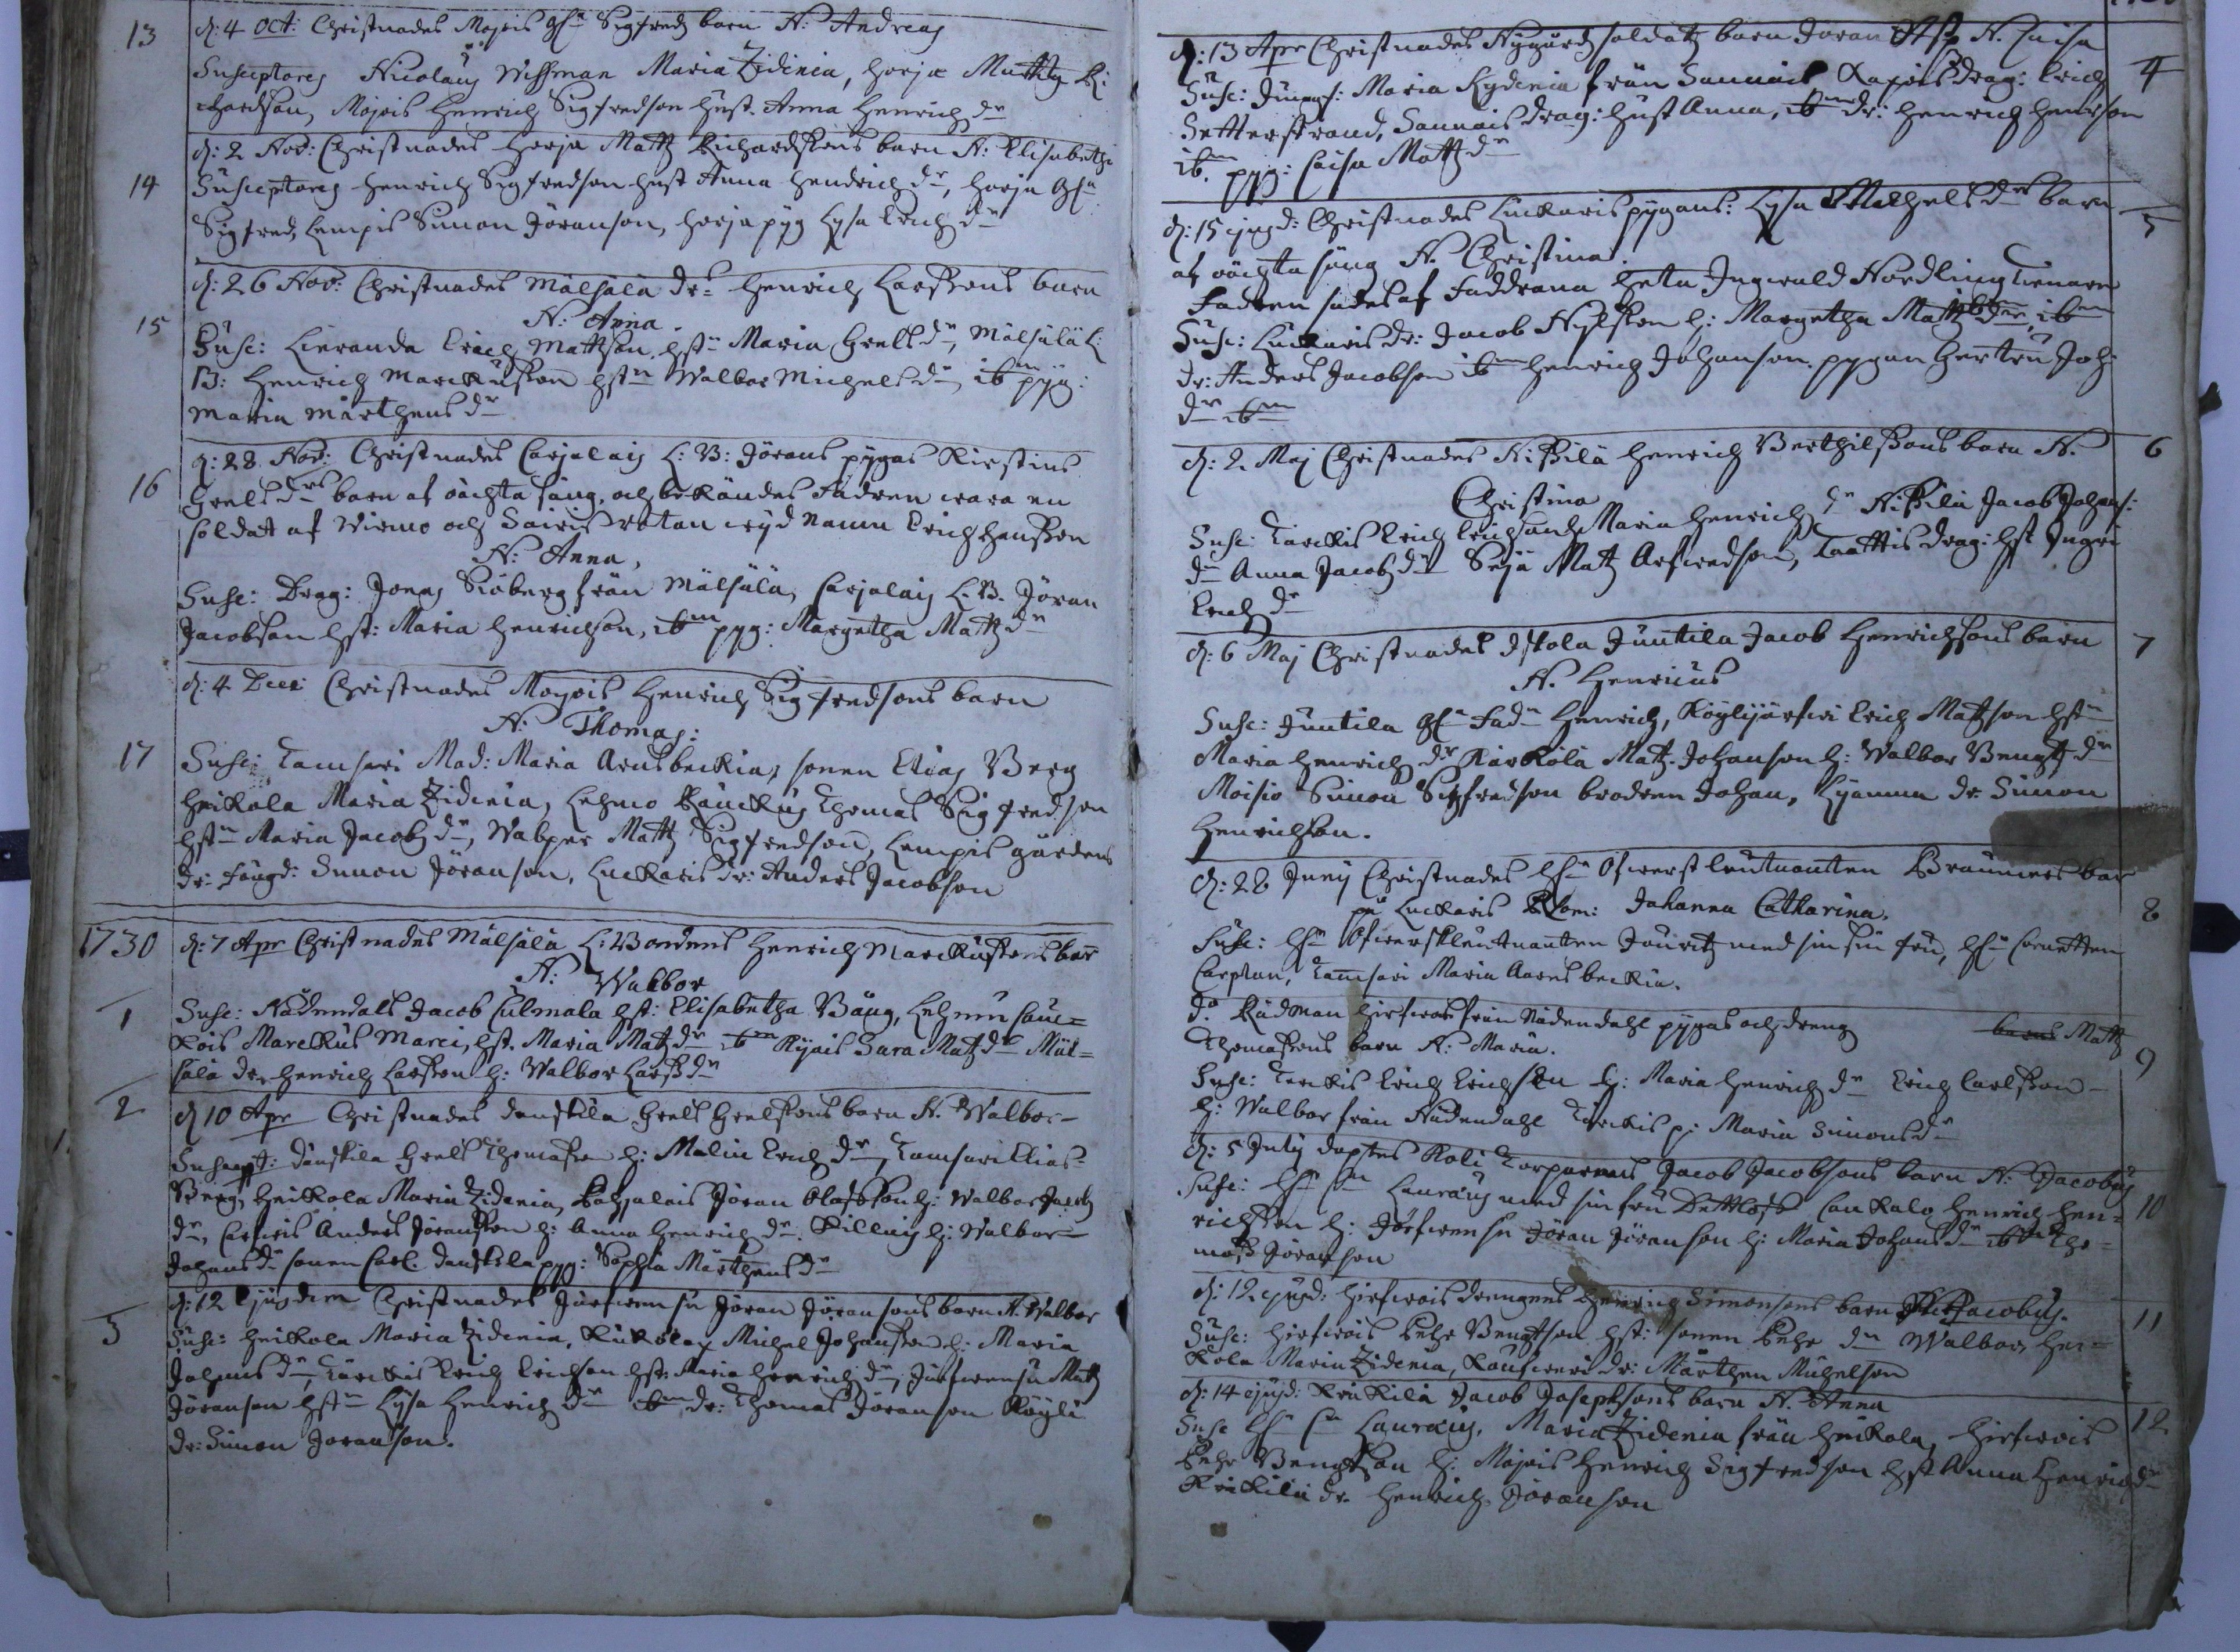 13 d: 4 Oct: Christnades Mojois gl Sigfredz barn N: Andreas
Susceptores Nicolaus Wissman Maria Zidenia, Horja Mattz Ri
chardson, Mojois Henrich Sigfredson hust. Anna Henrich dr
d: 2 Nov: Christnades Horja Mattz Richardssons barn N: Elisabetha
14 Susceptores Henrich Sigfredson hust Anna Hendrich dr, Horja
Sigfred, Lempis Simon Jöranson, Horja pyg Lysa Erich dr
d: 26 Nov: Christnades Mälsälä dr: Henrich Larssons barn
N: Anna.
15 Susc: Lieranda Erich Mattsson, hstr Maria Grels dr, Mälsälä L:
B: Henrich Marckusson hstr Walbor Michels dr, ibm pyg:
Maria Märthens dr
d: 28 Nov: Christnades Carjalais L: B: Jörans pygas Kirstins
16 Grels drs barn af oächta säng, och bekändes Fadren wara en
soldat af Wirmo och Sairis rotan wyd namn Erich Hansson
N: Anna,
Susc: Drag: Jonas Siöberg från Mälsälä, Carjalais L: B. Jöran
Jacobson hst: Maria Henrichson, ibm pyg: Margetha Mattz dr
d: 4 Dec: Christnades Mojois Henrich Sigfredsons barn
N: Thomas:
17 Susc: Tamsari Mad: Maria Arnbeckia, sonen Elias Berg
Heikola Maria Zidenia, Lehmo Thomas Sigfredson
hstr Maria Jacobz dr, Mattz Sigfredson, Lempis gårdens
dr: Simon Jöranson, Luckaris dr: Anders Jacobson
1730 d: 7 Apr Christnades Mälsälä L: Bondens Henrich Marckussons barn
N: Walbor
1 Susc: Nådendals Jacob Culmala hst: Elisabetha Bäng, Lehmu
Marckus Marci, hst. Maria Matz dr ibm Kyais Sara Matz dr Mäl=
sälä dr Henrich Larsson h: Walbor Larss dr
2 d 10 Apr Christnades Danskila Grels Grelssons barn N. Walbor
Suscept: Danskila Grels Thomasson h: Malin Erich dr, Tamsari Elias
Berg, Heikola Maria Zidenia, Jöran Olafsson h: Walbor Jacobz
dr, Anders Jöransson h: Anna Henrich dr. Killais h: Walbor
Johans dr sonen Carl. Danskila pyg: Sophia Märthens dr
3 d: 12 Ejusdem Christnades Järfwensu Jöran Jöransons barn N. Walbor
Susc: Heikola Maria Zidenia, Michel Johansson h: Maria
Johans dr, Tarckis Erich Erichson hst: Maria Henrich dr, Järfwensu Mattz
Jöranson hstr Lysa Henrich dr ibm dr: Thomas Jöranson Köyli
dr: Simon Joranson.
d: 13 Apr Christnades Nygårdz soldatz barn Joran N. Caisa
4 Susc: Jungf: Maria Rydenia från Sannais drag: Erich
Setterstrand, Sannais drag: hust Anna, ibm dr: Henrich Henrson
ib. pyg: Caisa Mattz dr
5 d: 15 ejusd: Christnades Luckaris pygans: Lysa Michels drs barn
af oächta säng N. Christina.
Fadren sades af Faddrana heta Ingwald Nordling
Susc: Luckaris dr: Jacob Nylsson h: Margetha Mattz dr, ibm
dr: Anders Jacobson ibm Henrich Johanson. pygan Gertru Joh:
dr ibm
6 d: 2. Maj Christnades Nissilä Henrich Berthilssons barn N.
Christina
Susc: Tarckis Erich Erichson Maria Henrich dr Nissilä Jacob Johans:
dr Anna Jacobz dr Matz Arfwedson, Taattis drag: hst Ingri
Erich dr
7 d: 6 Maj Christnades Iskola Juntila Jacob Henrichsons barn
N. Henricus
Susc: Juntila Henrich, Köylijärfwi Erich Matzson hstr
Maria Henrich dr Kirkkola Matz Johanson h: Walbor Bengtz dr
Moisio Simon Sigfredson brodren Johan, dr. Simon
Henrichson.
8 d: 28 Juny Christnades Hr Öfwerst leutnanten Brauners bar
på Luckaris Nom: Johanna Catharina.
Susc: Hr Öfwerstleutnanten med sin fru, Hr Cornetten
Tamsari Maria Aarnbeckia.
9 do Rådman från Nådendahl pygas och dreng barns Matz
Thomassons barn N. Maria.
Susc: Tarckis Erich Erichson h: Maria Henrich dr Erich Carlsson
h: Walbor från Nådendahl Tarckis p: Maria Simons dr
10 d: 5 July döptes Koli Torparens Jacob Jacobsons barn N: Jacobus
Susc: Hr Lauraeus med sin fru Henrich Hen=
richsson h: Järfwensu Jöran Jöranson h: Maria Johans dr ibm Tho=
mass Jöranson
11 d: 12 ejusd: Hirfwois drengens Henrich Simonsons barn Jacobus.
Susc: Hirfwois Pehr Bengtson hst: sonen Pehr dr Walbor, Hei=
kola Maria Zidenia, dr: Märthen Michelson
12 d: 14 ejusd: Krickilä Jacob Josephsons barn N. Anna
Susc Hr Lauraeus, Maria Zidenia från Heikola, Hirfwois
Pehr Bengtson h: Mojois Henrich Sigfredson hst Anna Henrichdr
Krickilä dr. Henrich Jöranson